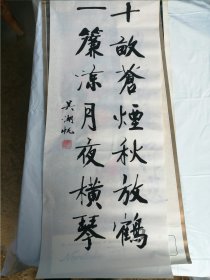 十畝蒼煙秋放鶴
一簾涼月夜橫琴
吳湖帆